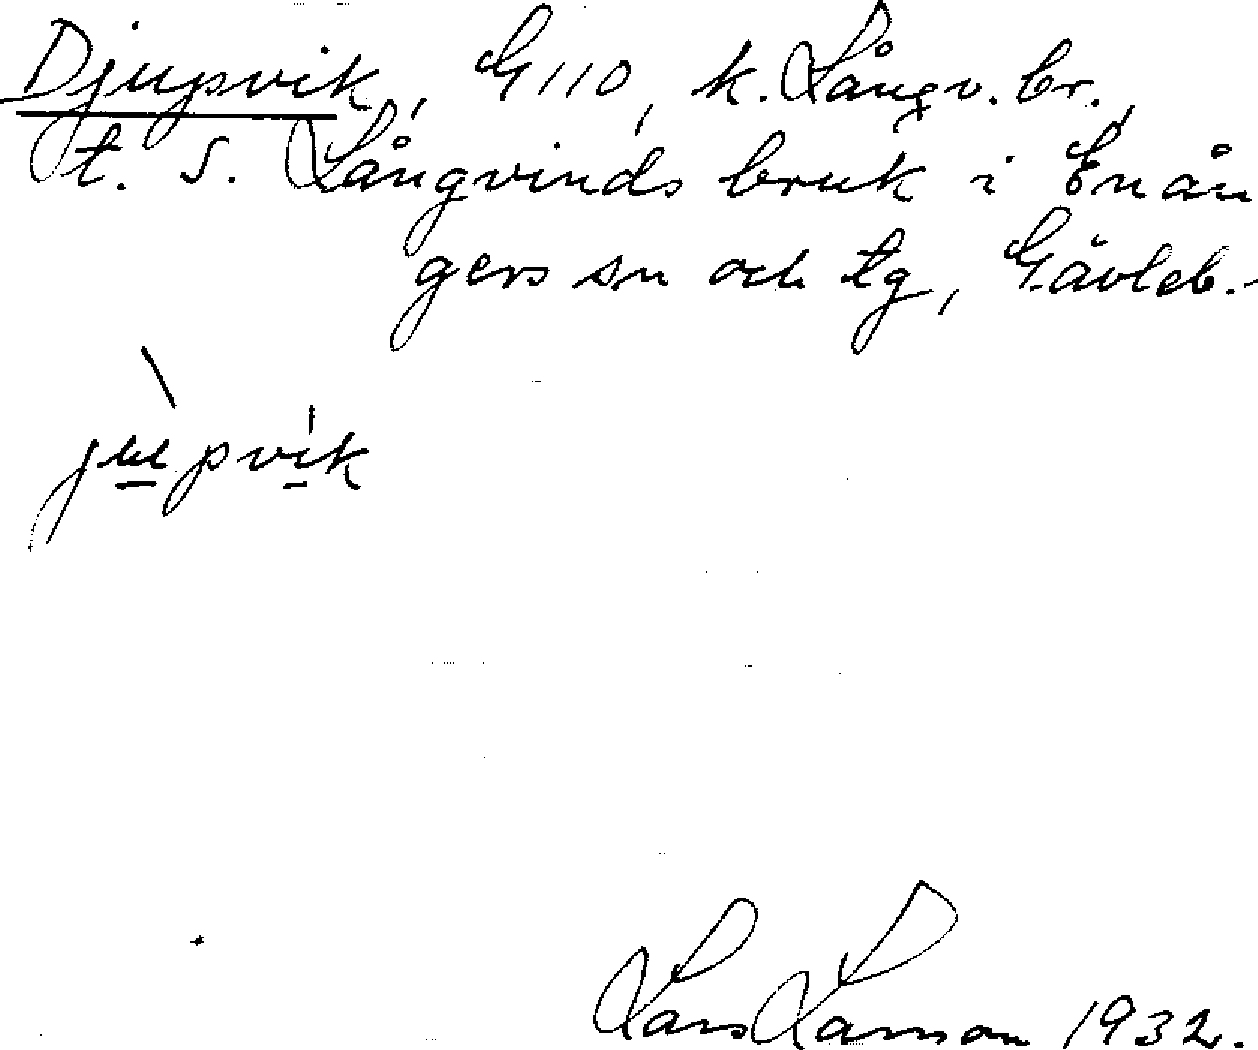 Djupvik, G110, k. Långv. br.,
t. S. Långvinds bruk i Enån
gers sn och tg, Gävleb.
jupvik
Lars Larsson 1932.